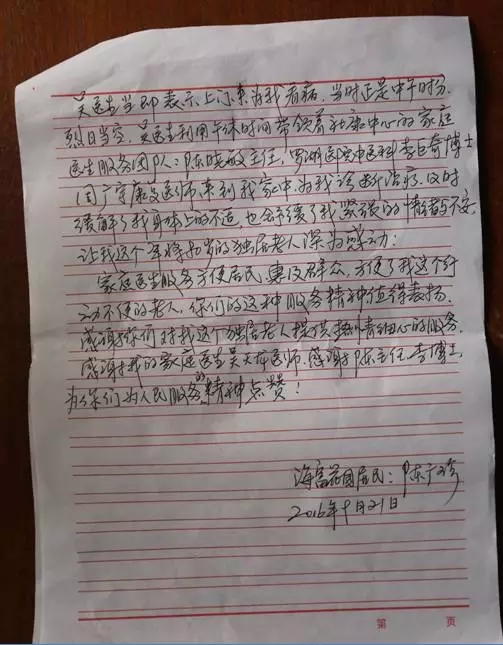 吴医生当即表示上门来为我看病，当时正是中午时分，
烈日当空，吴医生利用午休时间带领着社康中心的家庭
医生服务团队：陈晓敏主任，罗湖医院中医科李巨奇博士
周广宇康复医师，来到我家中，为我诊断治病，及时
缓解了我身体上的不适，也舒缓了我紧张的情绪与不安，
让我这个年将九旬的独居老人深为感动：
家庭医生服务方便居民，惠及群众，方便了我这个行
动不便的老人，你们的这种服务精神值得表扬，
感谢你们对我这个独居老人提供热情细心的服务。
感谢我的家庭医生吴天布医师，感谢陈主任，李博士，
为你们为人民服务的精神点赞！
海富花园居民：陈广珍
2016年9月21日
第 页